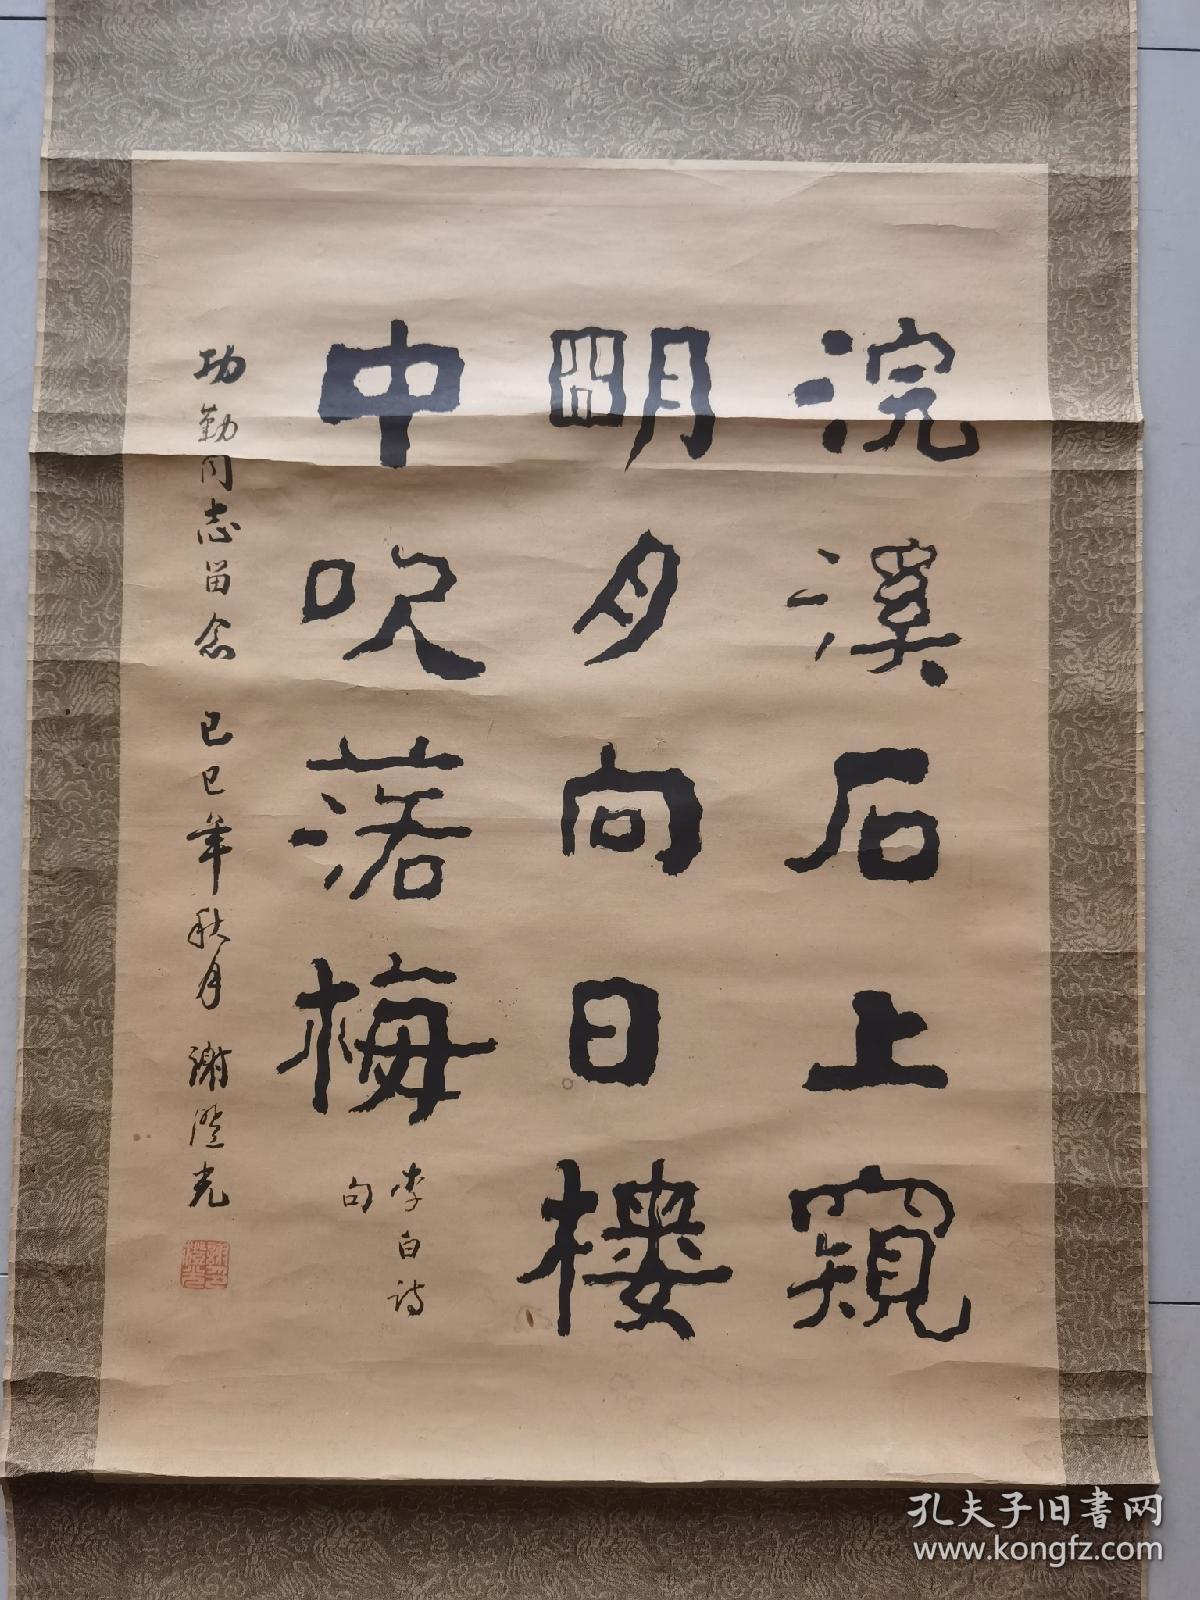 浣溪石上窺
明月向日樓
中吹落梅
李白诗
句
功勤同志留念 己巳年秋月 谢澄光
孔夫子旧書网
www.kongfz.com